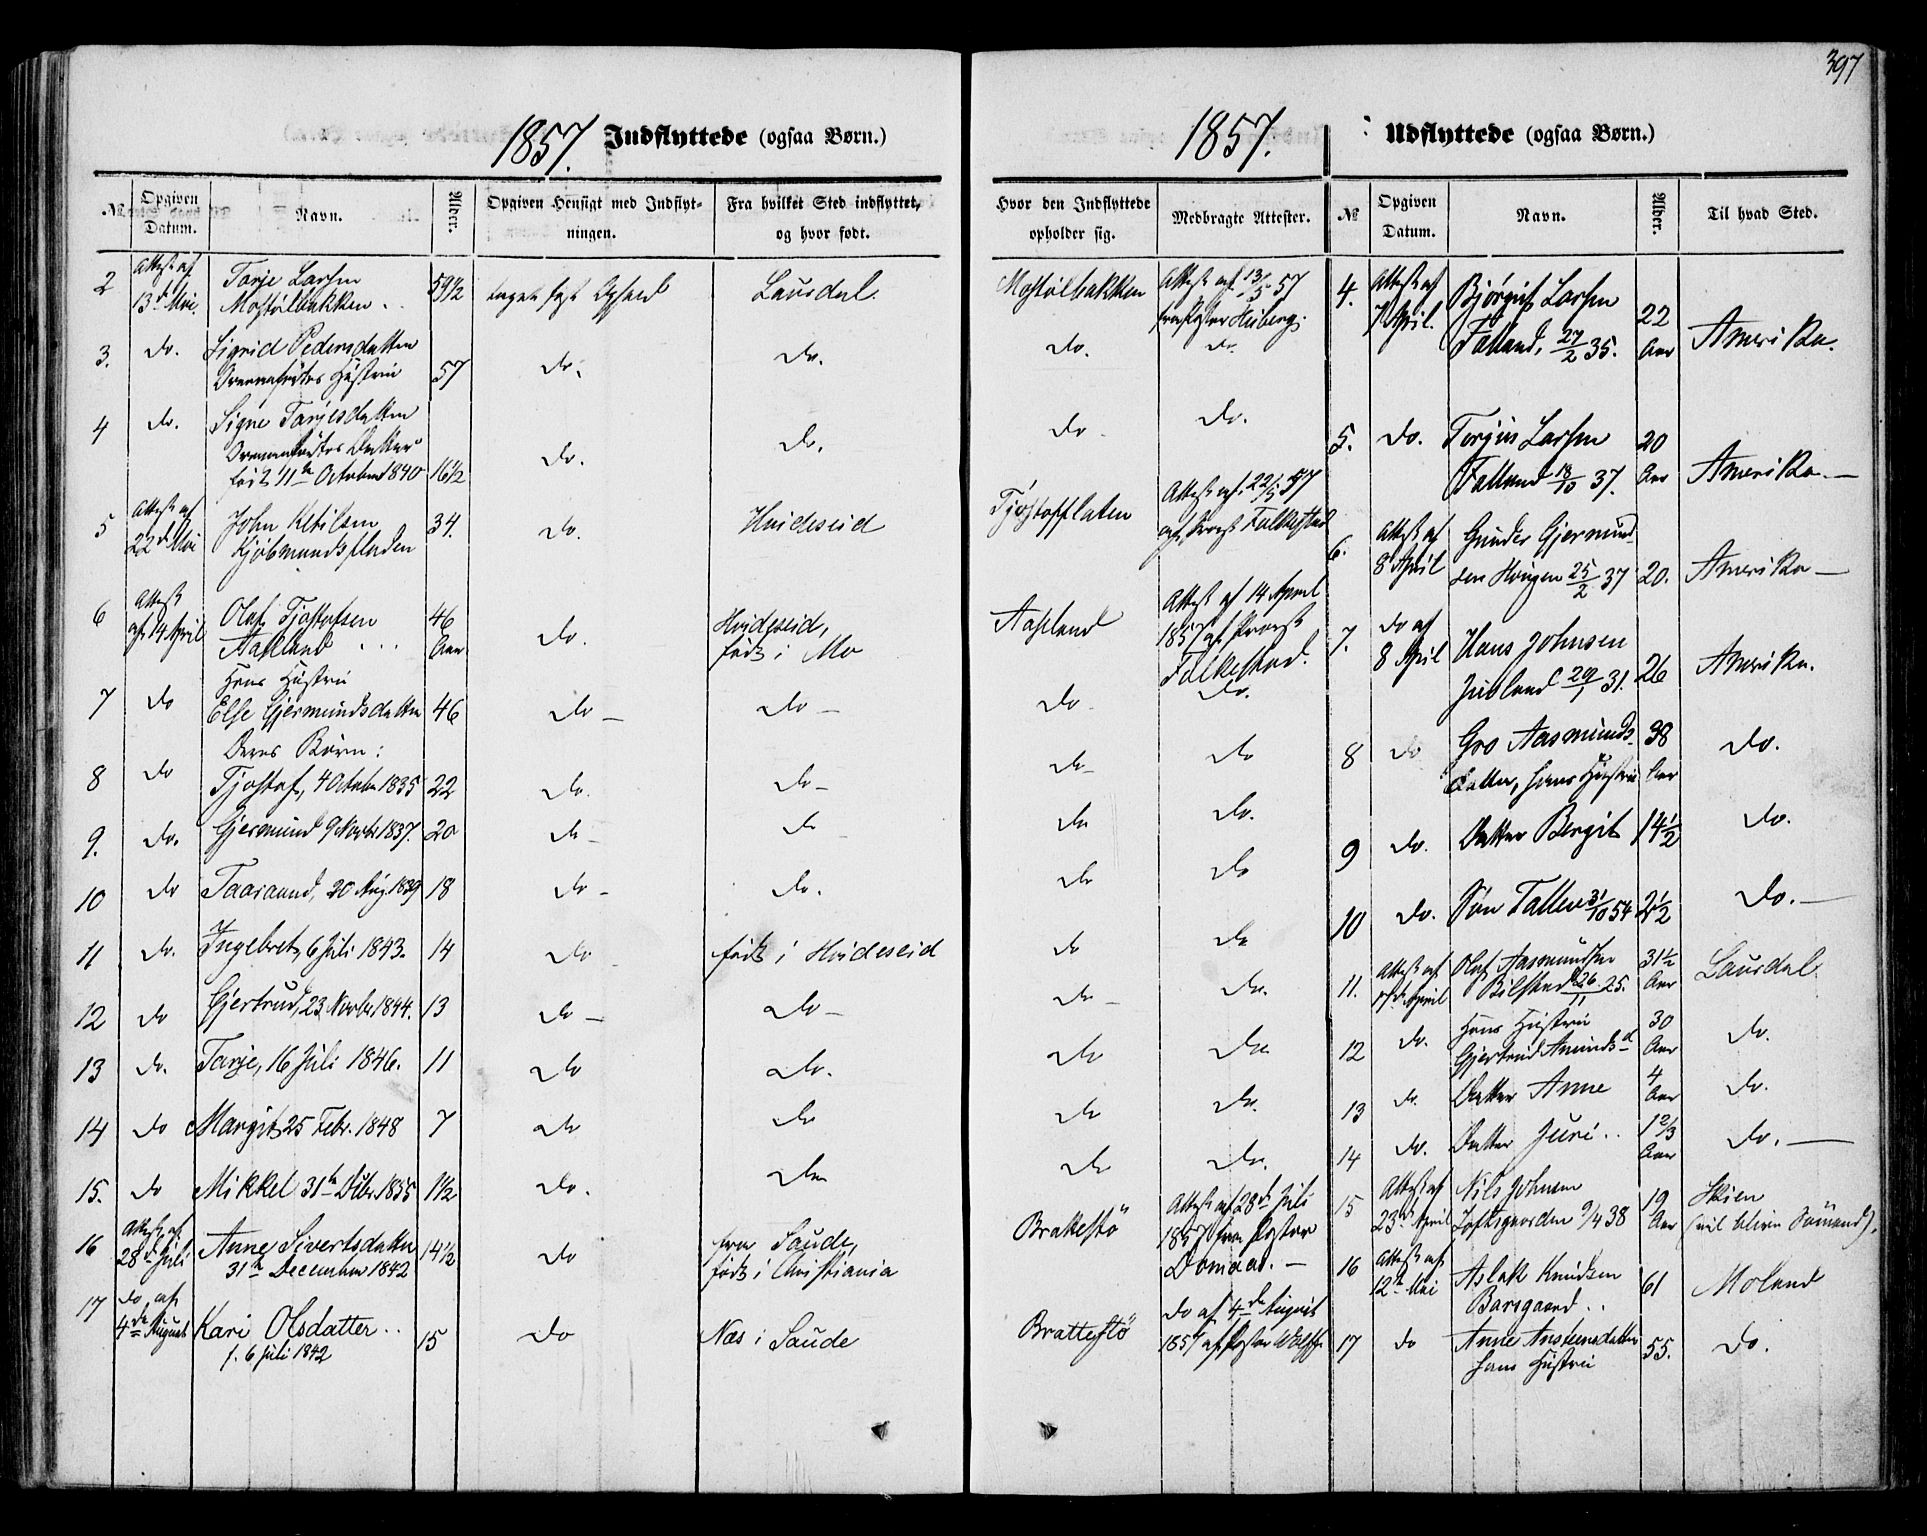 397
1857. Indflyttede (ogsaa Børn.)
№ Opgiven Datum. Navn. Alder. Opgiven Hensigt med Indflytningen. Fra hvilket Sted indflyttet, og hvor født.
2 Attest af 13d Mai. Tarje Larsen 59½ taget fast Ophold Laurdal.
Mostølbakken
3. do. Sigrid Pedersdatter 57 do. do.
Hustru
4 do. Signe Tarjesdatter do. do.
Datter
født 11te October 1840 16½
5 Attest af 22d Mai John Ketilsen 34. do. Hvideseid
Kjøbmandspladen
6 Attest af 14 April Olaf Tjostofsen 46 Aar do. Hvideseid,
Aasland født i Mo
Hans Hustru
7 do Else Gjermundsdatter 46 do - do -
Deres Børn:
8 do Tjostof, 4 Octobr 1835 22 do. do -
9. do. Gjermund 9 Novbr 1837. 20 do - do
10 do Taaraand, 20 Aug. 1839 18 do - do.
11 do. Ingebret, 6 Juli 1843. 14 do født i Hvideseid
12 do Gjertrud, 23 Novbr. 1844. 13 do - do -
13 do. Tarje, 16 Juli 1846. 11 do do.
14 do Margit 25 Febr. 1848 7 do do
15. do Mikkel 31te Dcbr. 1855 1½ do. do
16 Attest af 28de Juli Anne Sivertsdatter 14½ do fra Saude,
31te December 1842 født i Christiania
17 do af 4de August Kari Olsdatter 15 do Næs i Saude
f. 6 Juli 1842
1857. Udflyttede (ogsaa Børn.)
Hvor den Indflyttede opholder sig. Medbragte Attester. № Opgiven Datum. Navn. Alder. Til hvad Sted.
Mostølbakken Attest af 13/5 57 4. Attest af 7 April. Bjørgulf Larsen 22 Aar Amerika.
fra Pastor Heiberg. Falland, 27/2 35.
do. do.
do do. 5. do. Torjus Larsen 20 Aar Amerika. -
Falland 18/10 37.
Tjostofpladen Attest af 22/5 57 6. Attest af 8 April Gunder Gjermund- 20. Amerika -
af Provst Falkestad sen Haugen 25/2 37
Aasland Attest af 14 April 7. do af 8 April Hans Johnsen 26 Amerika.
1857 af Provst Juvland 29/1 31.
Falkestad.
do do. 8 do Gro Aasmunds- 38 Aar do.
datter, hans Hustru
do do
do do. 9 do. Datter Bergit 14½ do.
do do 10 do. Søn Tallev 31/10 54 2½ do. -
do do 11. Attest af April Olaf Aasmundsen 31½ Aar Laurdal
Bilstad 26/11 25.
do - do. 12 do. Hans Hustru 30 Aar do.
Gjertrud Amundsd
do do 13 do. Datter Anne 4 Aar do.
do do. 14 do. Datter Juri 1⅔ Aar do. -
do do.
Brattestø Attest af 28de Juli 15 Attest af 23de April Nils Johnsen 19 Aar Skien
1857 fra Pastor Loftsgaarden 9/4 38 (vil blive Sømand).
16 Attest af 12te Mai Aslak Knudsen 61 Moland
Barsgaard
Brattestø do af 4de August 17 do Anne Ansteensdatter 55. do.
1857 af Pastor Wolff hans Hustru